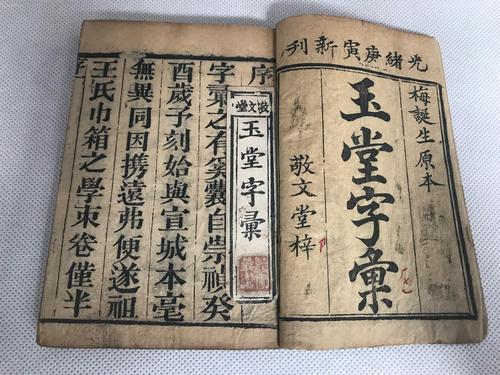 光緒庚寅新刊
梅誕生原本
玉堂字彙
敬文堂梓
敬文堂
玉堂字彙
序
字彙之有奚囊自崇禎癸
酉歲予刻始與宣城本毫
無異同因携遠弗便遂祖
王氏巾箱之學朿卷僅半